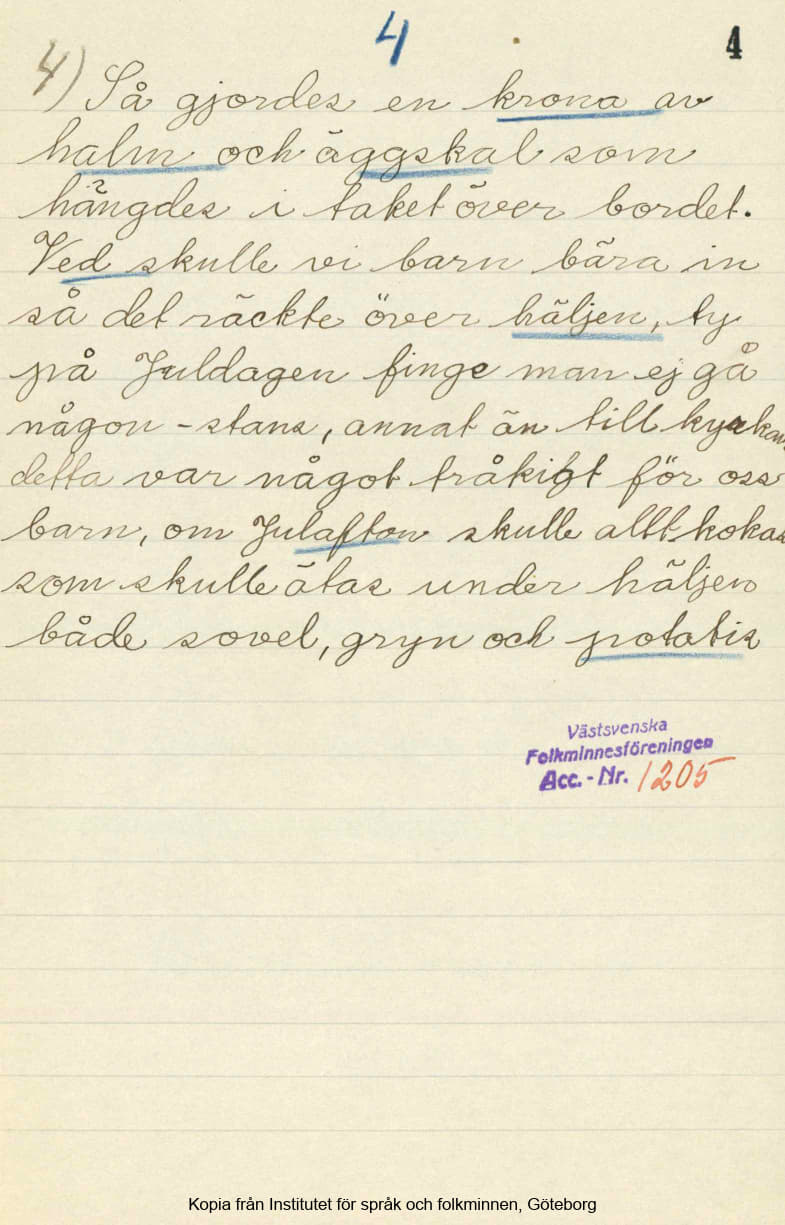 4 4
4) Så gjordes en krona av
halm och äggskal som
hängdes i taket över bordet.
Ved skulle vi barn bära in
så det räckte över häljen, ty
på Juldagen finge man ej gå
någon-stans, annat än till kyrkan
detta var något tråkigt för oss
barn, om Julafton skulle allt kokas
som skulle ätas under häljen
både sovel, gryn och potatis
Västsvenska
Folkminnesföreningen
Acc.-Nr. 1205
Kopia från Institutet för språk och folkminnen, Göteborg